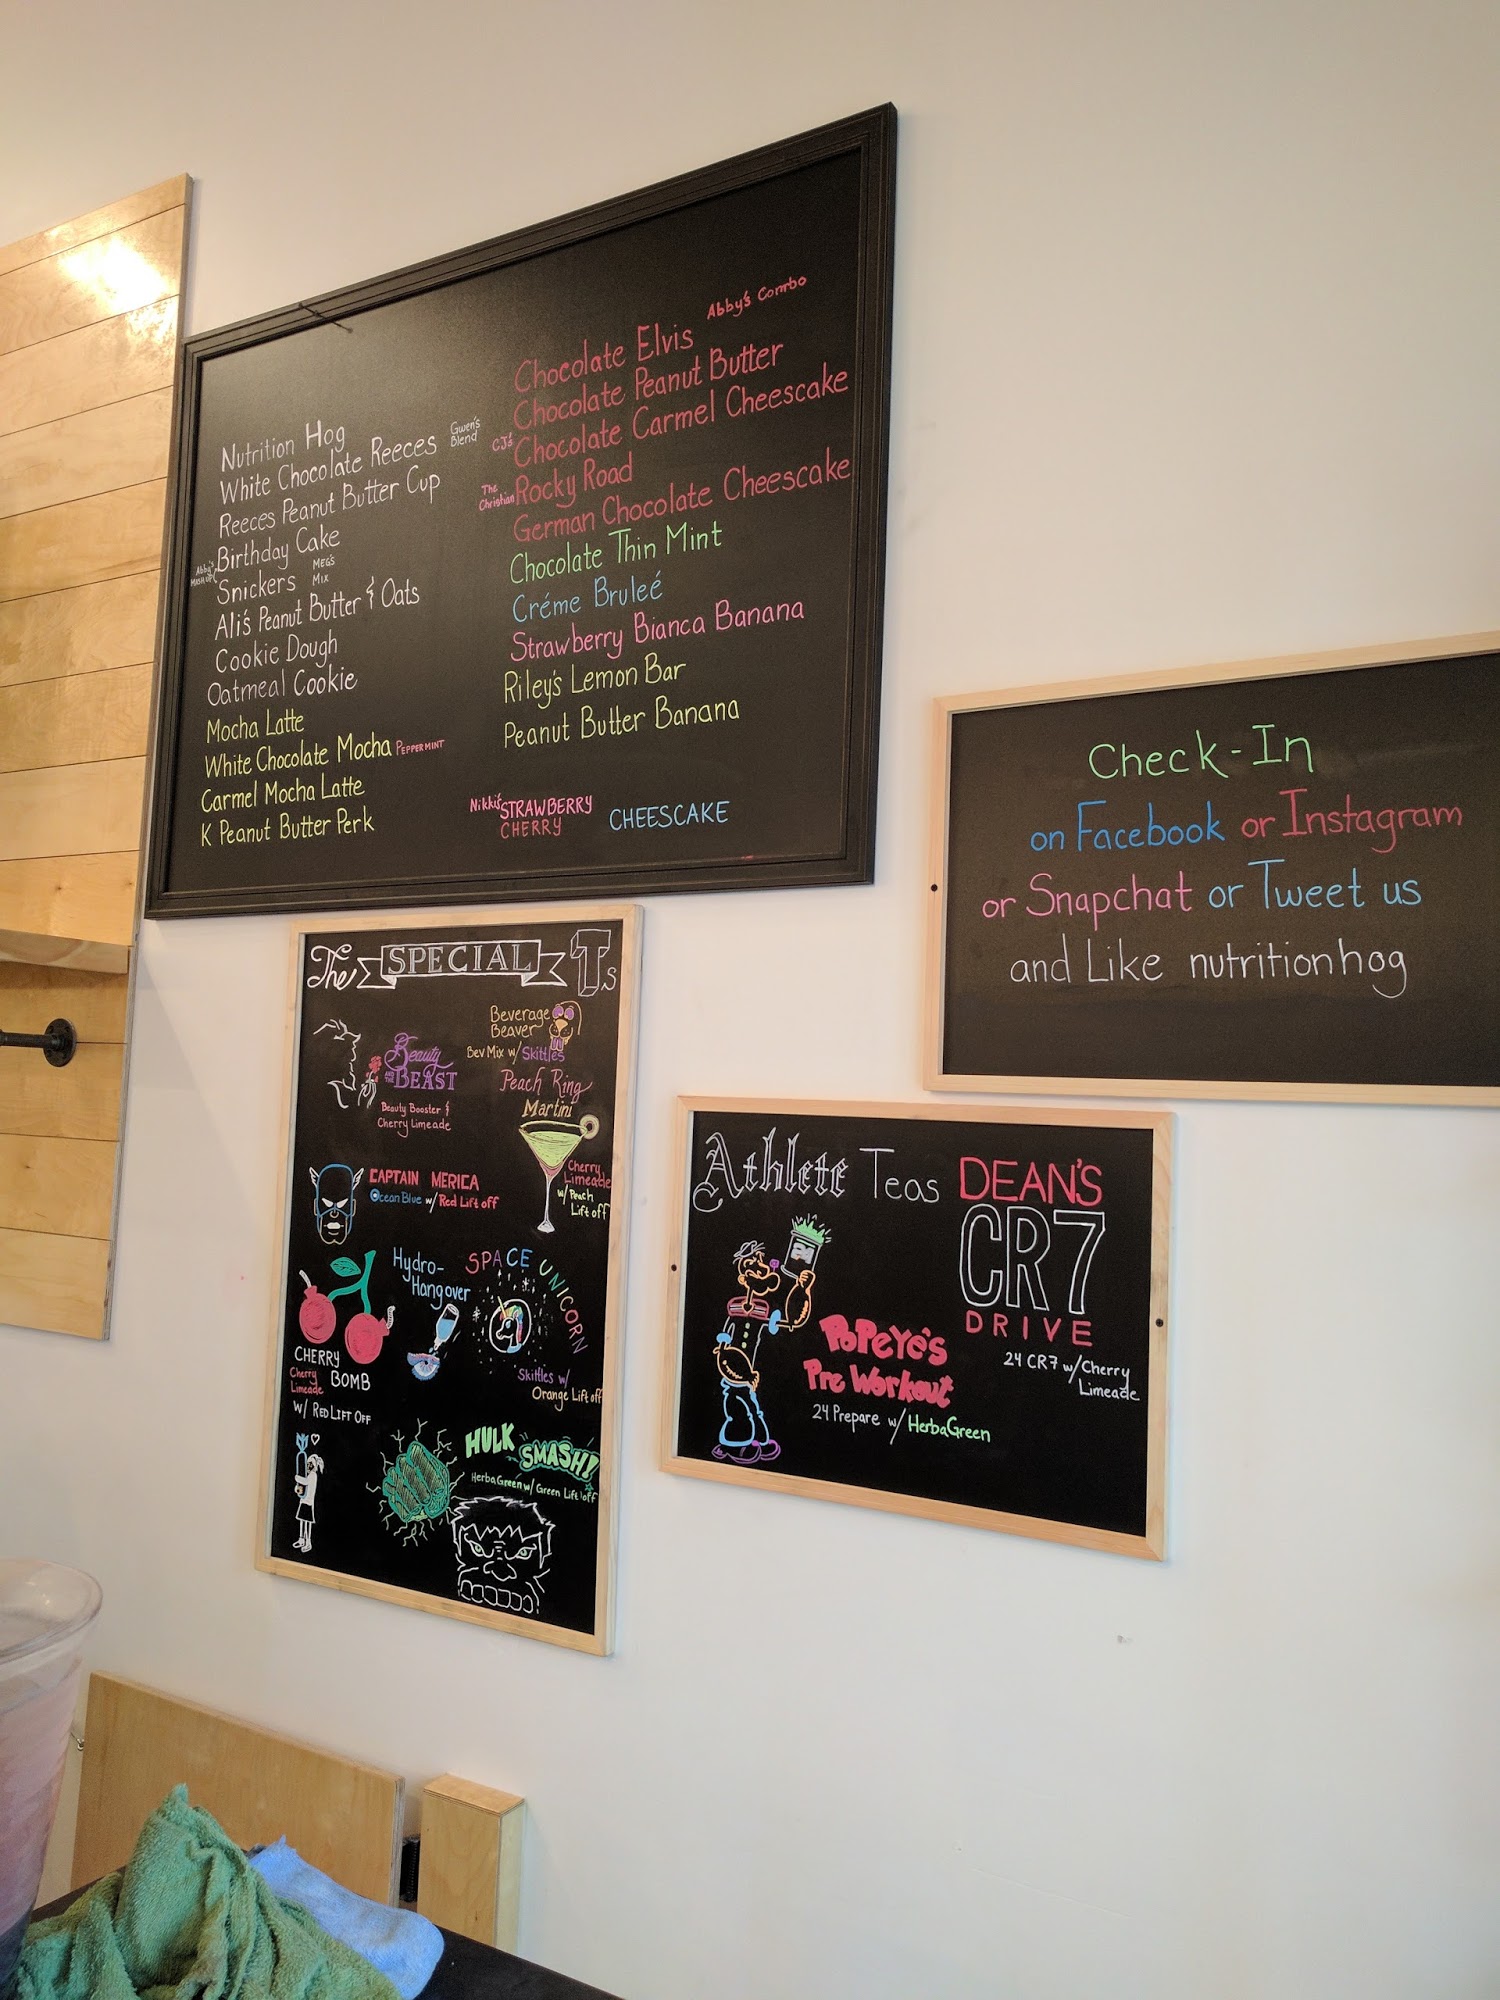 Nutrition Hog
White Chocolate Reeces Gwen's Blend
Reeces Peanut Butter Cup
Birthday Cake
Abby's MASH UP Snickers MEG'S MIX
Ali's Peanut Butter & Oats
Cookie Dough
Oatmeal Cookie
Mocha Latte
White Chocolate Mocha PEPPERMINT
Carmel Mocha Latte
K Peanut Butter Perk
Chocolate Elvis Abby's Combo
Chocolate Peanut Butter
CJ's Chocolate Carmel Cheescake
The Christian Rocky Road
German Chocolate Cheescake
Chocolate Thin Mint
Créme Bruleé
Strawberry Bianca Banana
Riley's Lemon Bar
Peanut Butter Banana
Nikki's STRAWBERRY
CHERRY
CHEESCAKE
Check-In
on Facebook or Instagram
or Snapchat or Tweet us
and Like nutritionhog
The SPECIAL Ts
Beauty
AND THE BEAST
Beauty Booster &
Cherry Limeade
Beverage
Beaver
Bev Mix w/ Skittles
Peach Ring
Martini
Cherry
Limeade
w/ Peach
Lift off
CAPTAIN MERICA
Ocean Blue w/ Red Lift off
CHERRY
BOMB
Cherry
Limeade
w/ RED LIFT OFF
Hydro-
Hangover
SPACE UNICORN
Skittles w/
Orange Lift off
HULK
SMASH!
HerbaGreen w/ Green Lift off
Athlete Teas
POPEYE'S
Pre Workout
24 Prepare w/ HerbaGreen
DEAN'S
CR7
DRIVE
24 CR7 w/ Cherry
Limeade